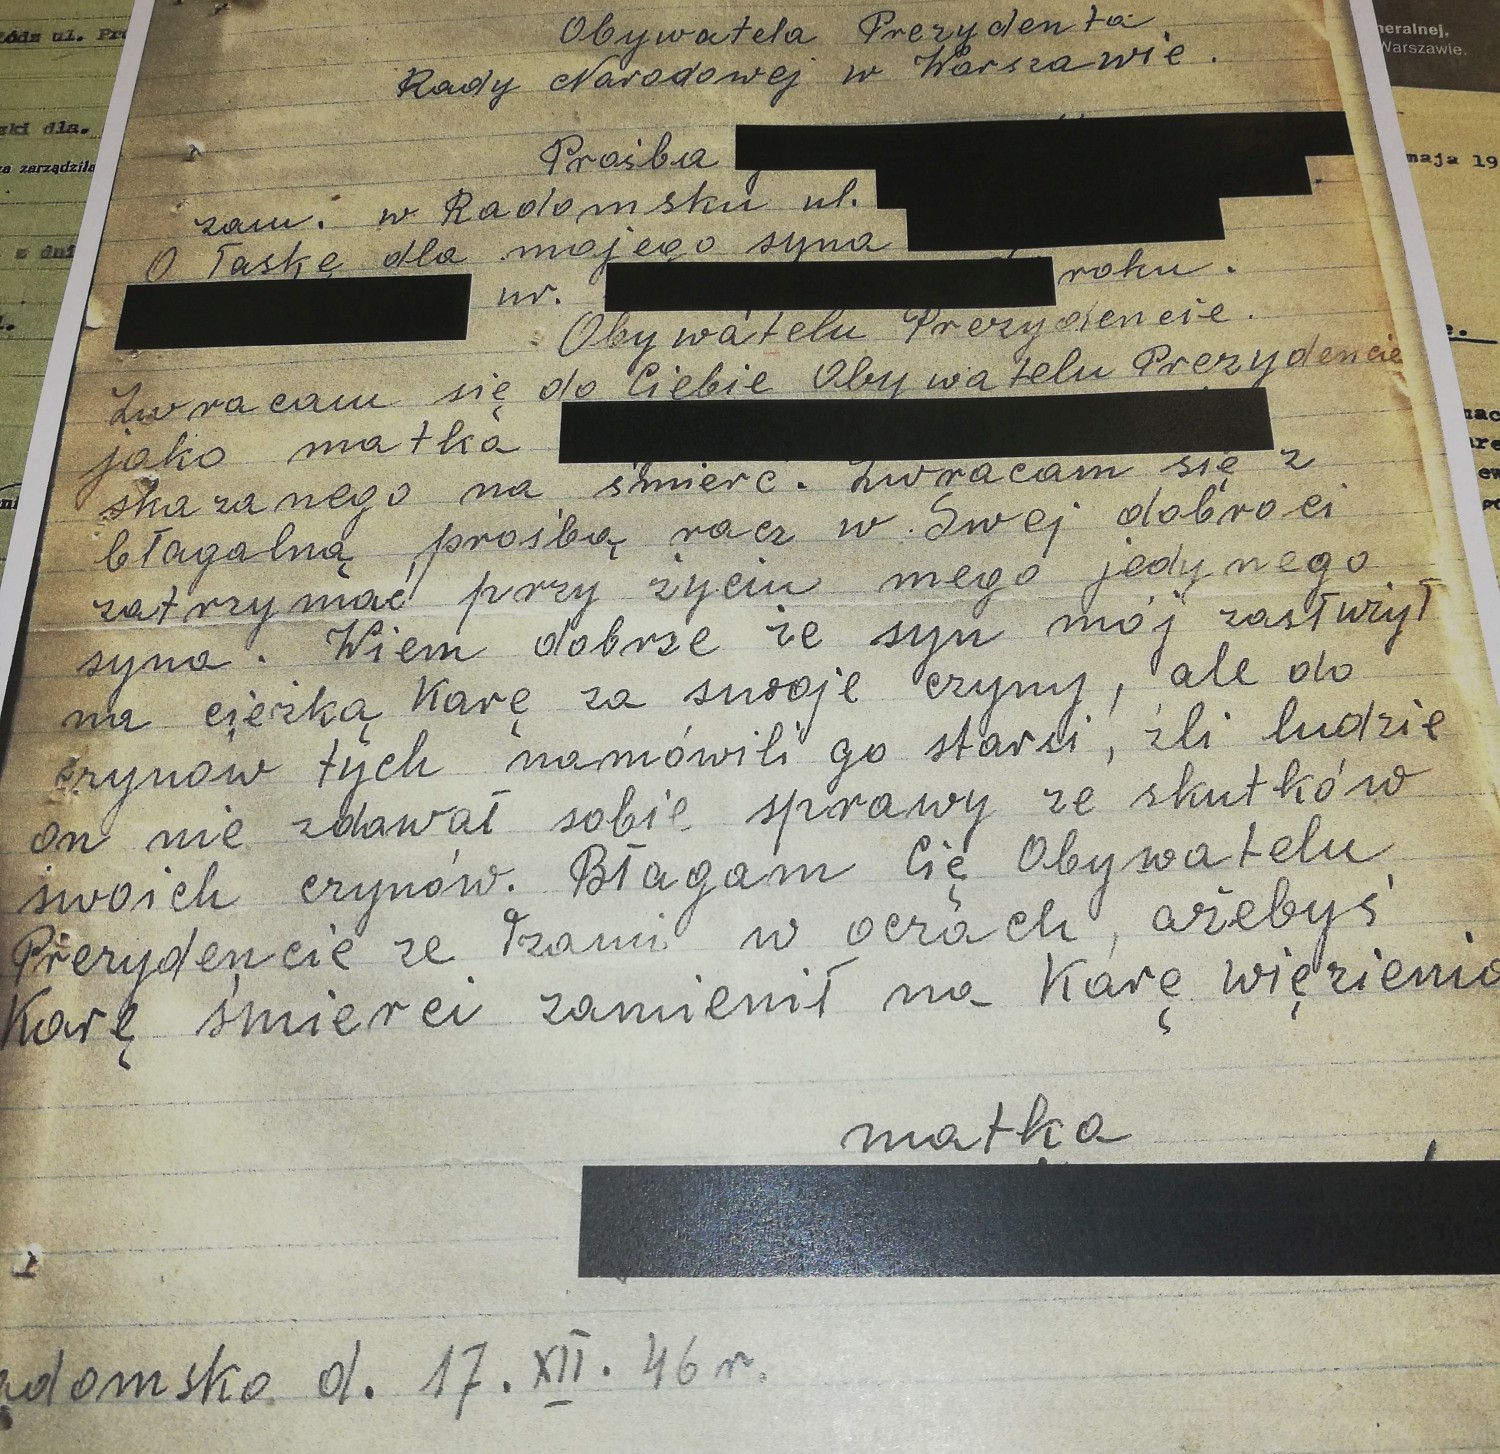 Obywatela Prezydenta
Rady Narodowej w Warszawie.
Prośba
zam. w Radomsku ul.
O łaskę dla mojego syna
ur. roku.
Obywatelu Prezydencie.
Zwracam się do Ciebie Obywatelu Prezydencie
jako matka
skazanego na śmierć. Zwracam się z
błagalną prośbą racz w Swej dobroci
zatrzymać przy życiu mego jedynego
syna. Wiem dobrze że syn mój zasłużył
na cięźką Karę za swoje czyny, ale do
czynów tych namówili go starsi, źli ludzie
on nie zdawał sobie sprawy ze skutków
swoich czynów. Błagam Cię Obywatelu
Prezydencie ze łzami w oczach, ażebyś
Karę śmierci zamienił na Karę więzienia
matka
adomsko d. 17. XII. 46 r.
ódz ul.
ski dla.
za zarządziła
z dni
neralnej,
Warszawie.
maja 19